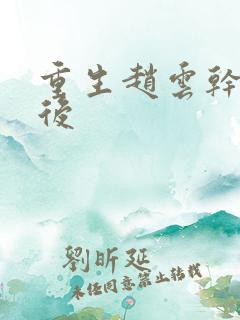 重生趙雲幹
後
劉昕延
未經同意禁止轉載